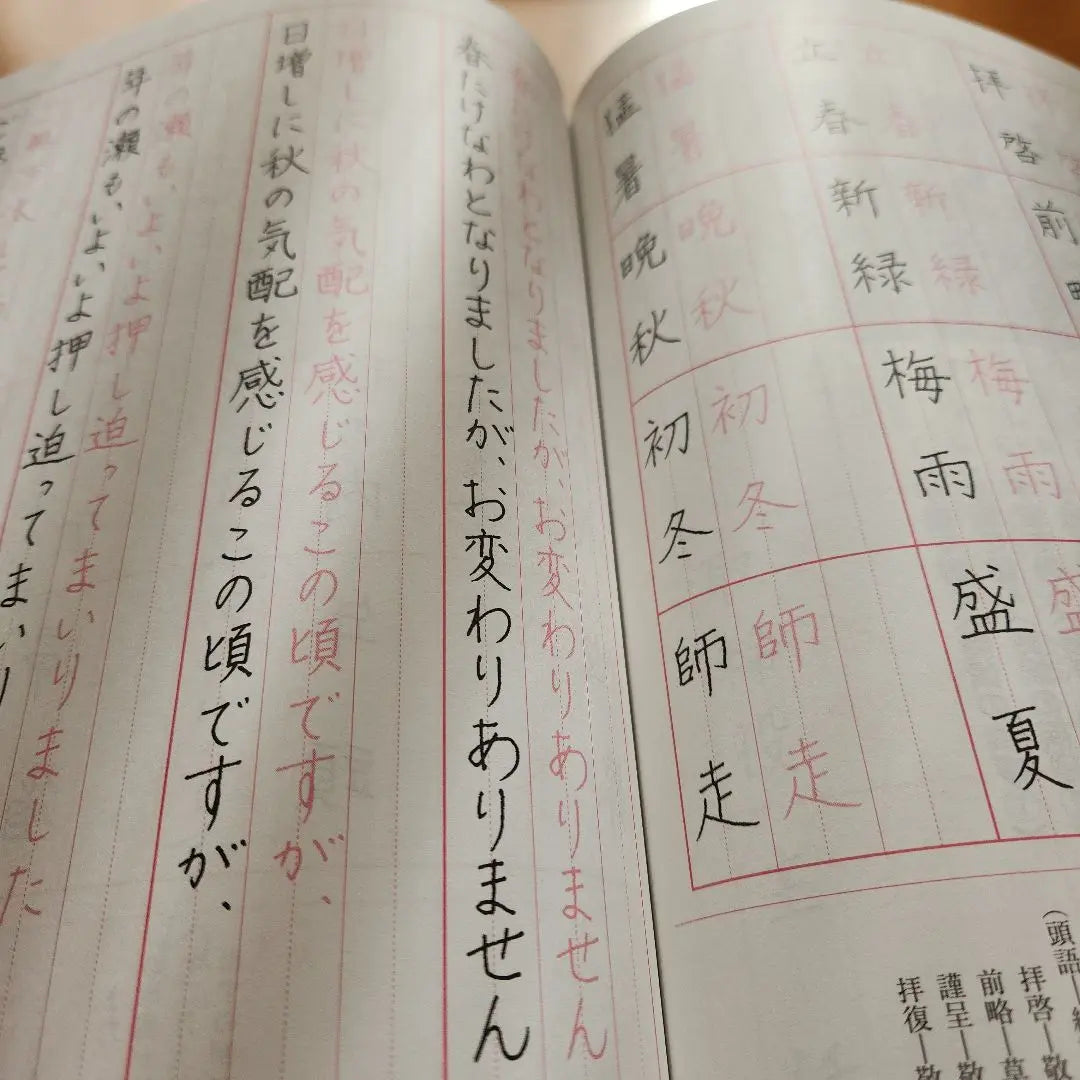 拝啓
拝啓 前
立春 新緑 梅雨 盛
立春 新緑 梅雨 盛夏
猛暑 晩秋 初冬 師走
猛暑 晩秋 初冬 師走
(頭語―
拝啓―敬
前略―草
謹呈―敬
拝復―敬
春たけなわとなりましたが、お変わりありません
春たけなわとなりましたが、お変わりありません
日増しに秋の気配を感じるこの頃ですが、
日増しに秋の気配を感じるこの頃ですが、
年の瀬も、いよいよ押し迫ってまいりました
年の瀬も、いよいよ押し迫ってまいり